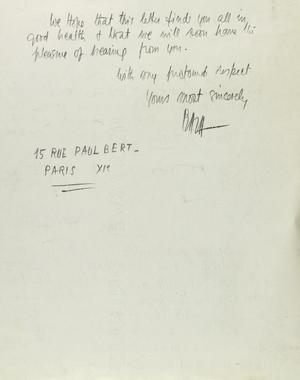 We hope that this letter finds you all in
good health & that we will soon have the
pleasure of hearing from you.
With my profound respect
Yours most sincerely
15 RUE PAUL BERT_
PARIS XIe